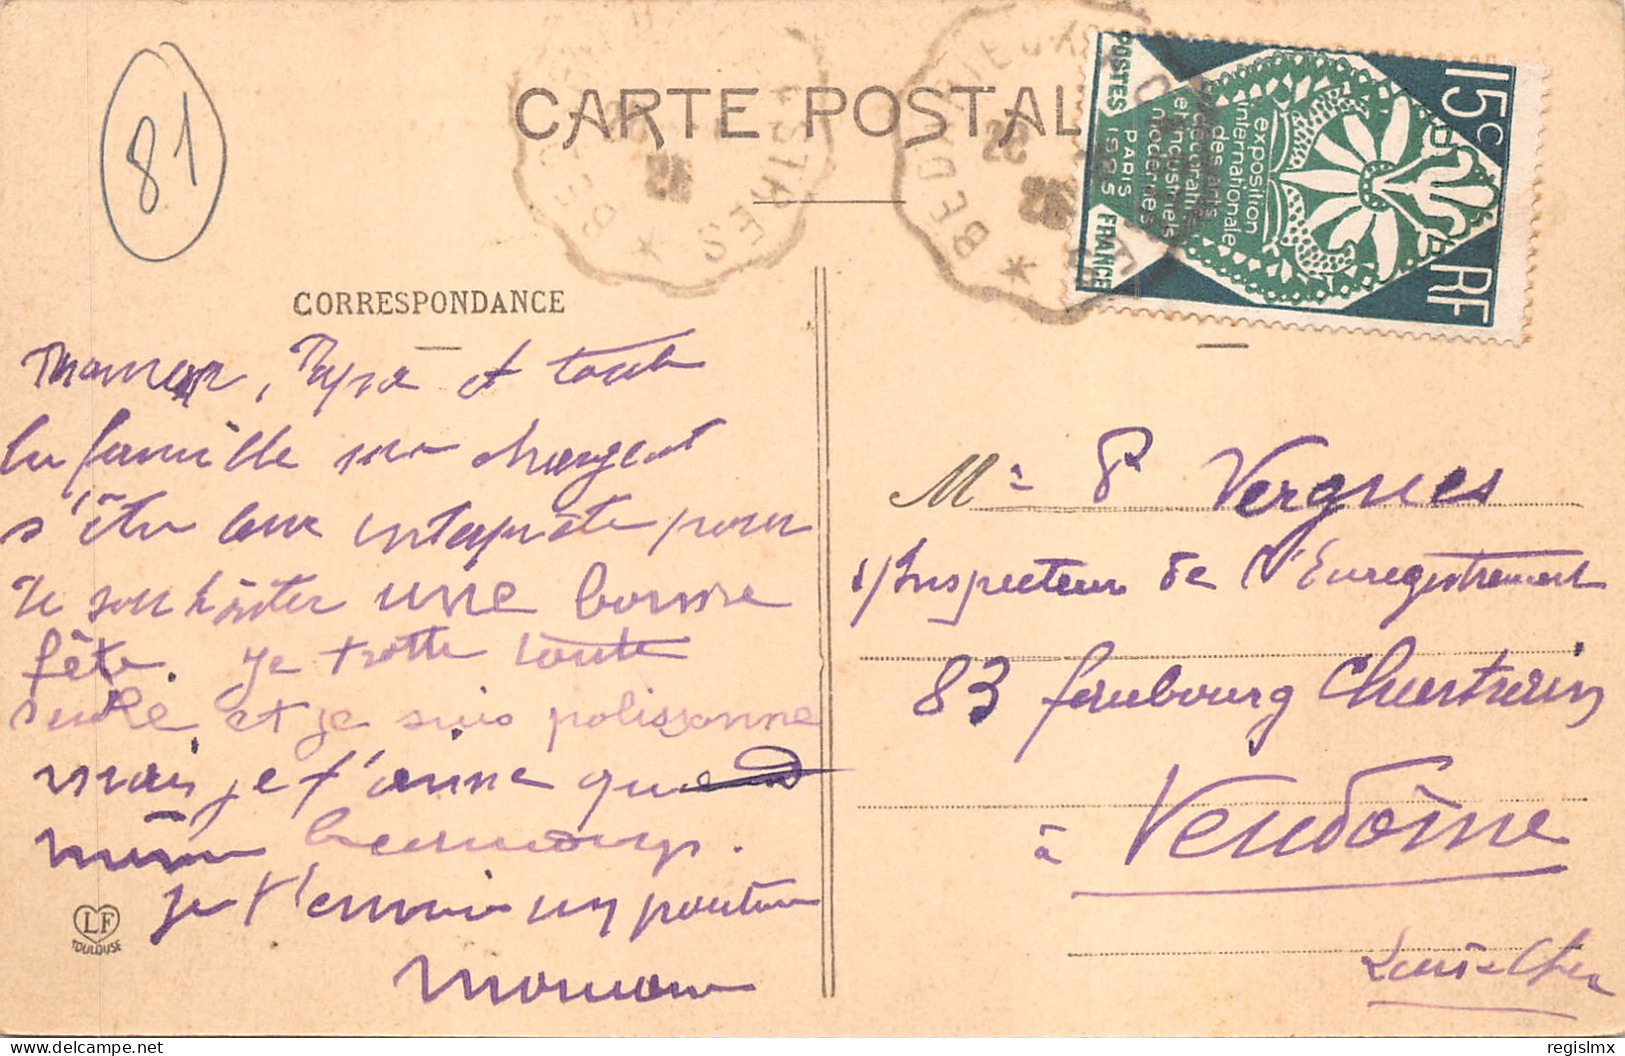 81
CARTE POSTAL
CORRESPONDANCE
BEDO
ESTRES
BEDO
POSTES FRANCE
PARIS 1925
exposition
internationale
des arts
décoratifs
et industriels
modernes
15c RF
Maman, Papa et toute
la famille me chargent
d'être leur interprète pour
te souhaiter une bonne
fête. Je trotte toute
seule et je suis polissonne
mais je t'aime que
même beaucoup.
Je t'envoie un poutou
LF
TOULOUSE
Mr P Vergnes
s/Inspecteur de l'Enregistrement
83 faubourg Chartrain
à Vendôme
Loir-&-Cher
regislmx
delcampe.net